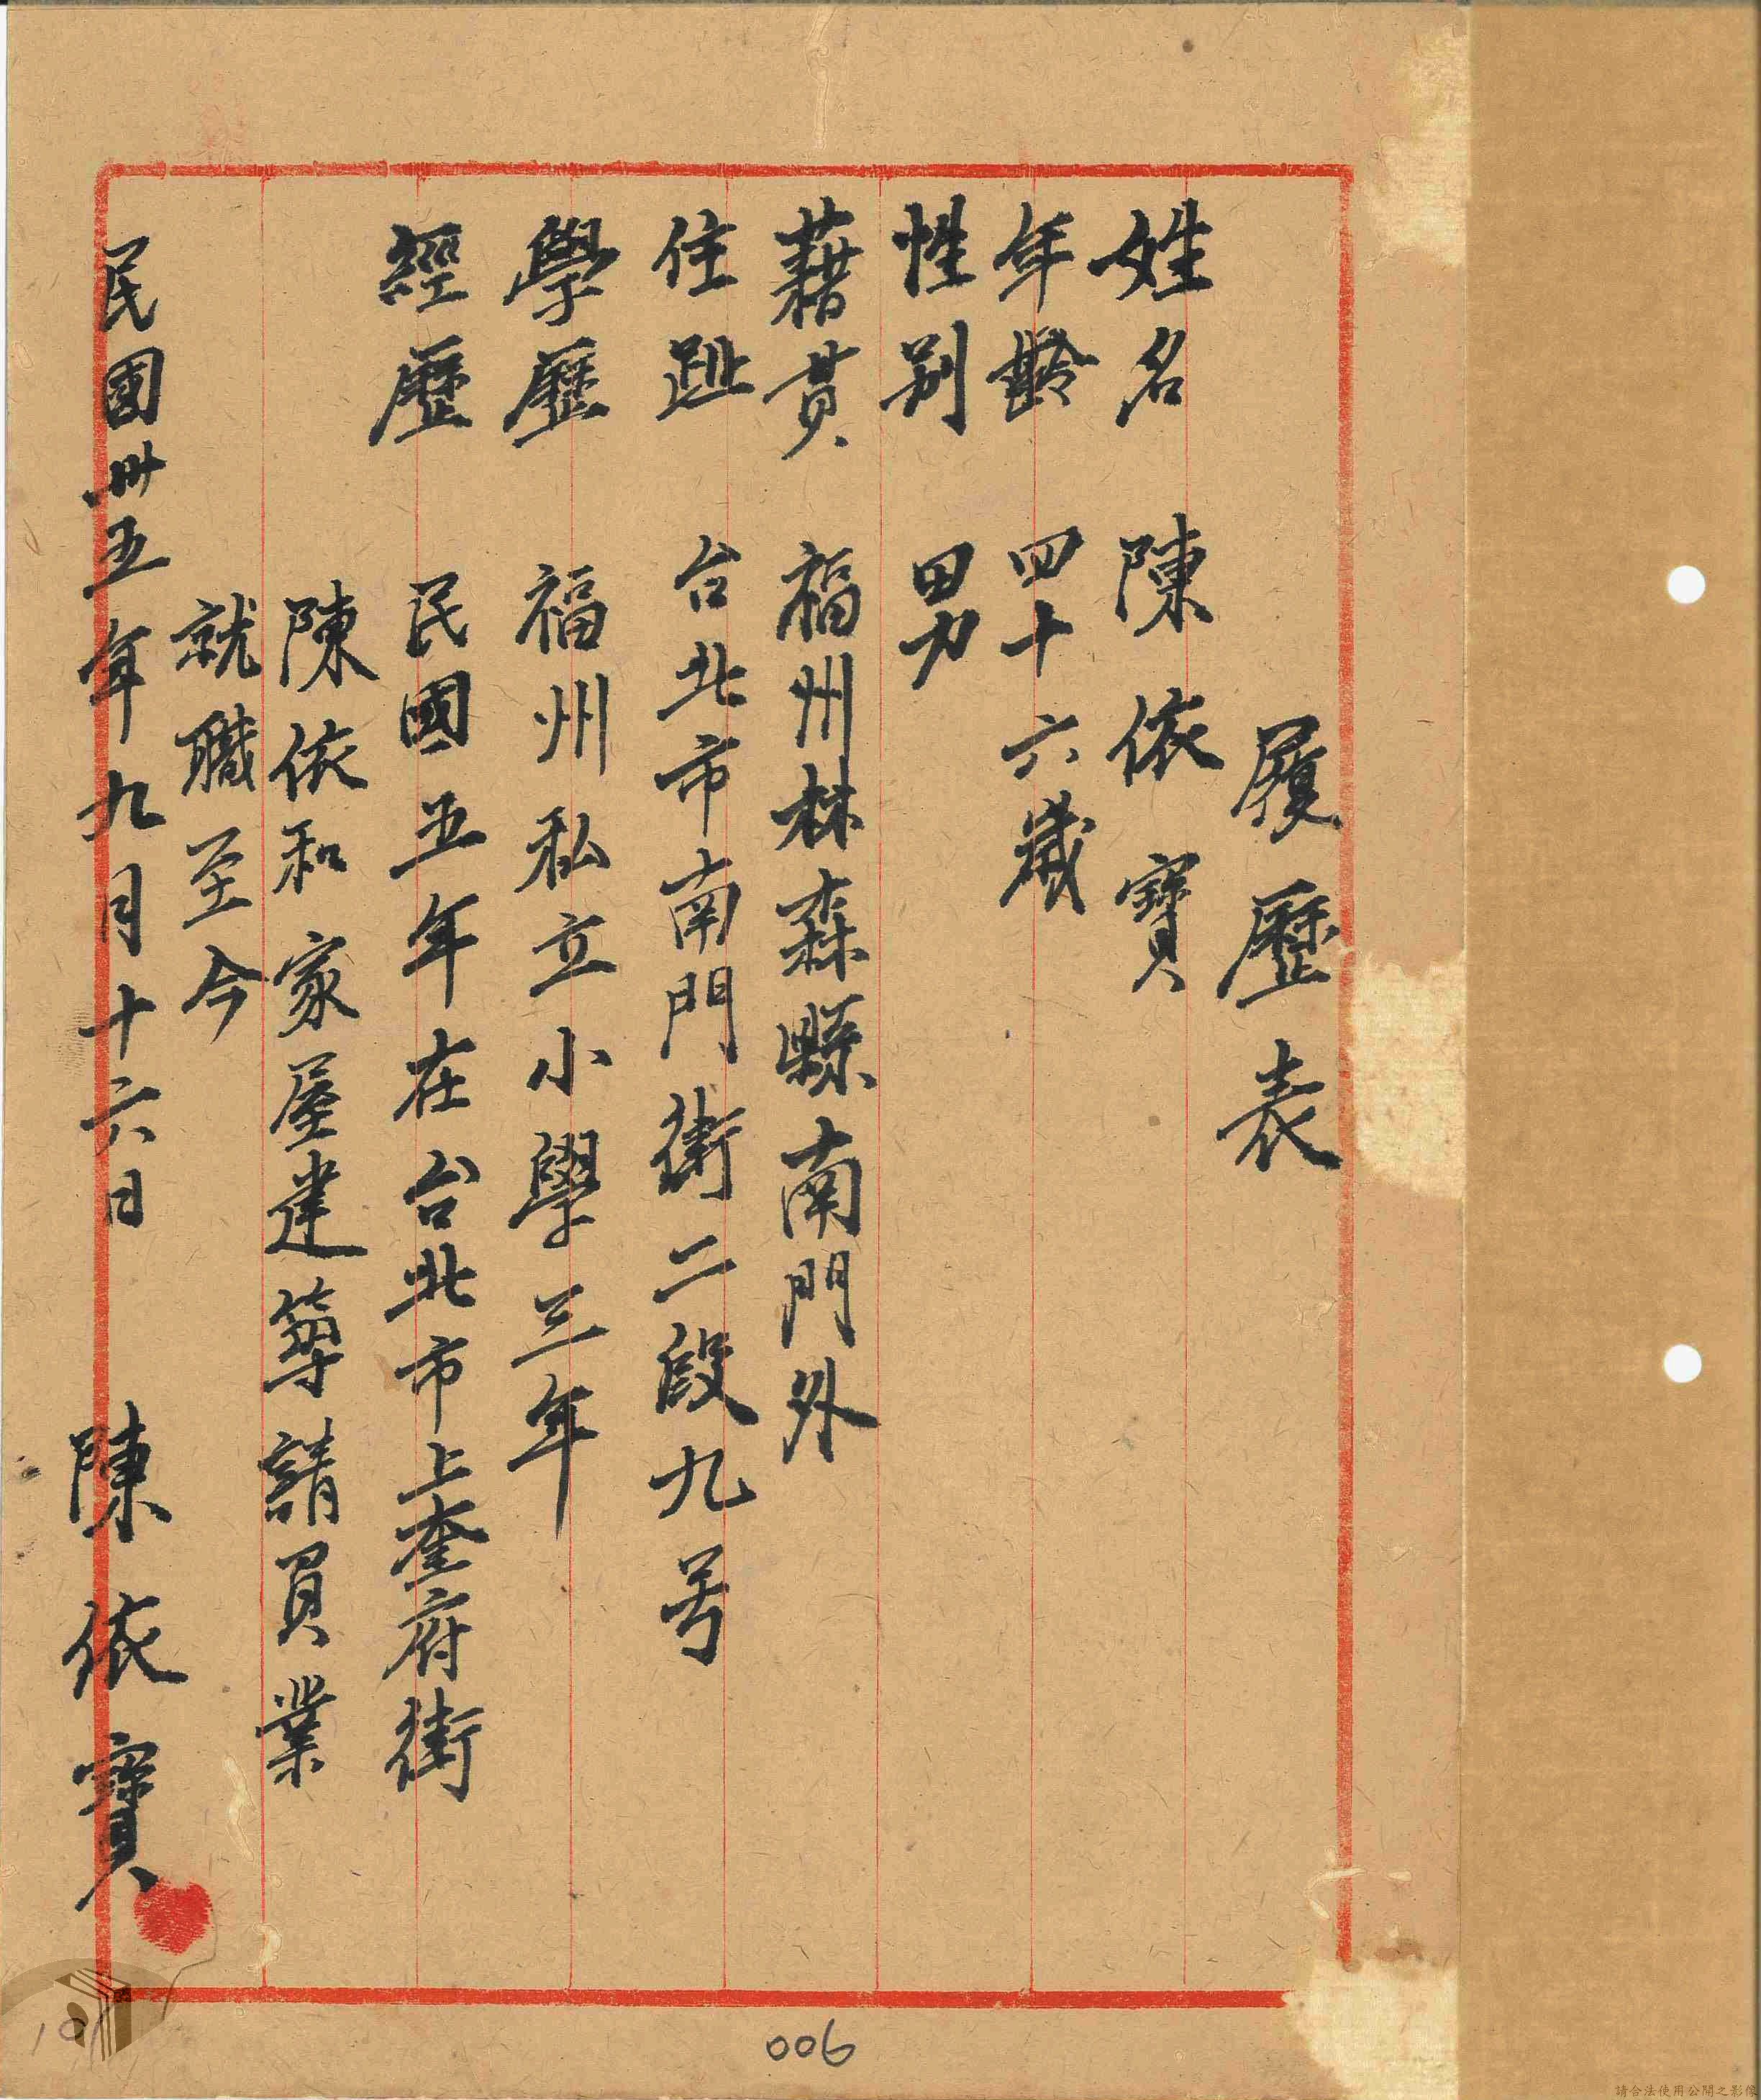 履歷表
姓名 陳依寶
年齡 四十六歲
性别 男
藉貫 福州林森縣南門外
住趾 台北市南門街二段九号
學歷 福州私立小學三年
經歷 民國五年在台北市上奎府街
陳依和家屋建築請負業
就職至今
民國卅五年九月十六日 陳依寶
006
請合法使用公開之影像